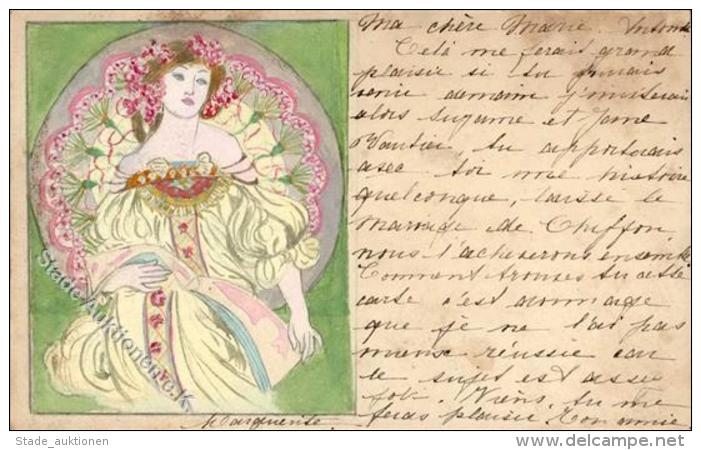 Ma chère Marie.
Celà me ferais grand
plaisir si tu pouvais
venir demain j'inviterais
alors Suzanne et Jane
Vautier, tu apporterais
avec toi une histoire
quelconque, laisse le
mariage de Chiffon
nous l'acheverons ensemble
Comment trouves tu cette
carte c'est dommage
que je ne l'ai pas
mieux réussie car
le sujet est assez
joli. Viens, tu me
feras plaisir. Ton amie
Marguerite.
Stade-Auktionen e.K.
Stade_auktionen
www.delcampe.net